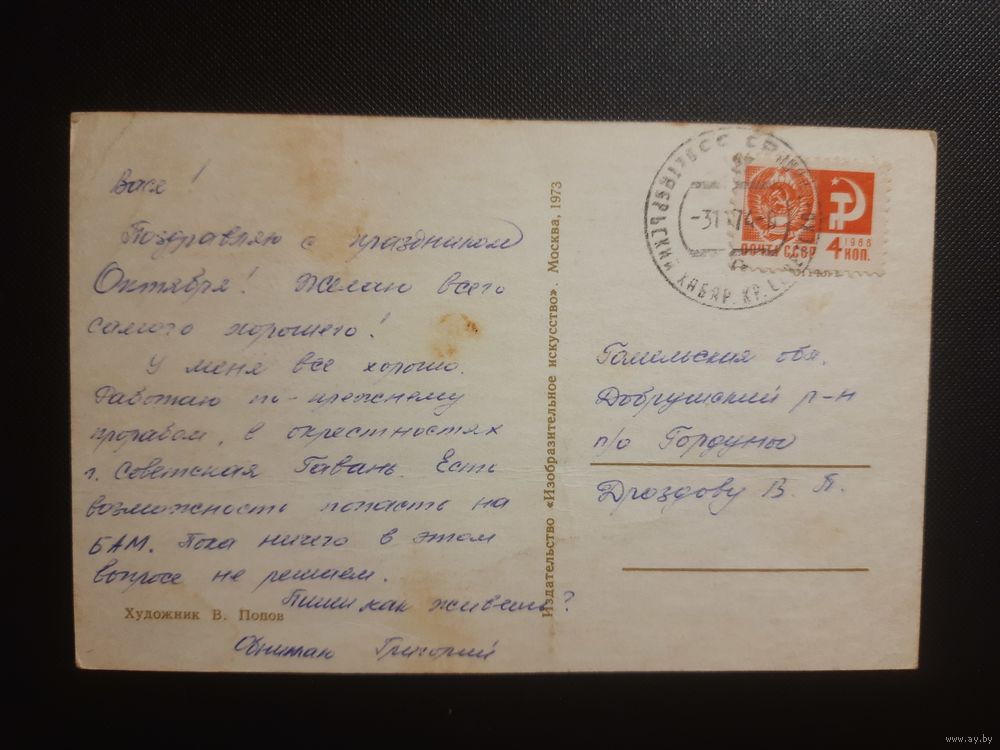 Вася!
Поздравляю с праздником
Октября! Желаю всего
самого хорошего!
У меня все хорошо.
Работаю по-прежнему
прорабом, в окрестностях
г. Советская Гавань. Есть
возможность попасть на
БАМ. Пока ничего в этом
вопросе не решаем.
Пиши как живешь?
Обнимаю Григорий
Художник В. Попов
Издательство «Изобразительное искусство». Москва, 1973
ПОЧТА СССР
1966
4 КОП.
ХАБАР. КР.
Гомельская обл.
Добрушский р-н
п/о
Дроздову В. П.
www.ay.by